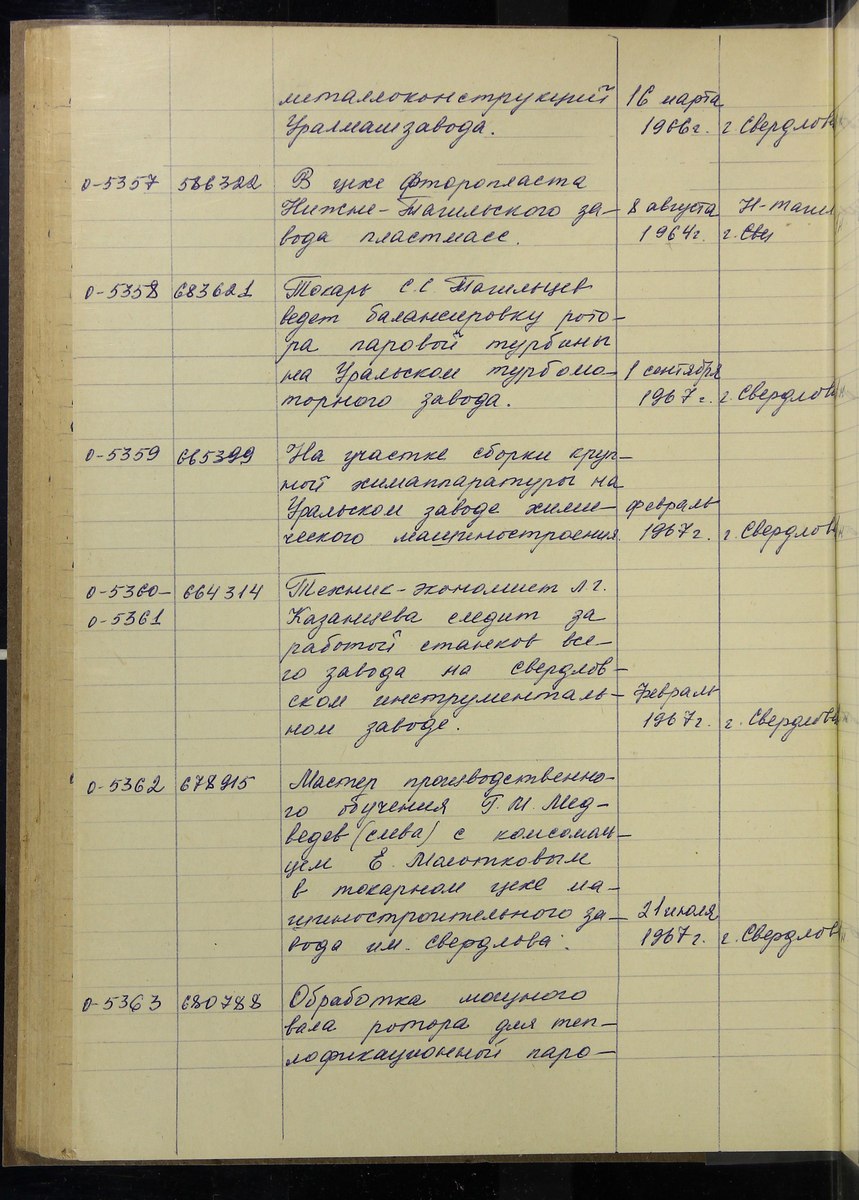 металлоконструкций 16 марта
Уралмашзавода. 1966г. г. Свердлов
0-5357 586322 В цехе фторопласта
Нижне-Тагильского за- 8 августа Н-Таги
вода пластмасс. 1964г. г. Све
0-5358 683621 Токарь С.С. Тагильцев
ведет балансировку рото-
ра паровой турбины
на Уральском турбомо- 1 сентября
торного завода. 1967 г. г. Свердлов
0-5359 665399 На участке сборки круп-
ной химаппаратуры на
Уральском заводе хими- февраль
ческого машиностроения 1967г. г. Свердлов
0-5360- 664314 Техник-экономист Л.Г.
0-5361 Казанцева следит за
работой станков все-
го завода на Свердлов-
ском инструменталь- Февраль
ном заводе. 1967г. г. Свердлов
0-5362 678915 Мастер производственно-
го обучения Г.И. Мед-
ведев (слева) с комсомоль-
цем Е.
в токарном цехе ма-
шиностроительного за- 21 июля
вода им. Свердлова. 1967г. г. Свердлов
0-5363 680788 Обработка мощного
вала ротора для теп-
лофикационной паро-